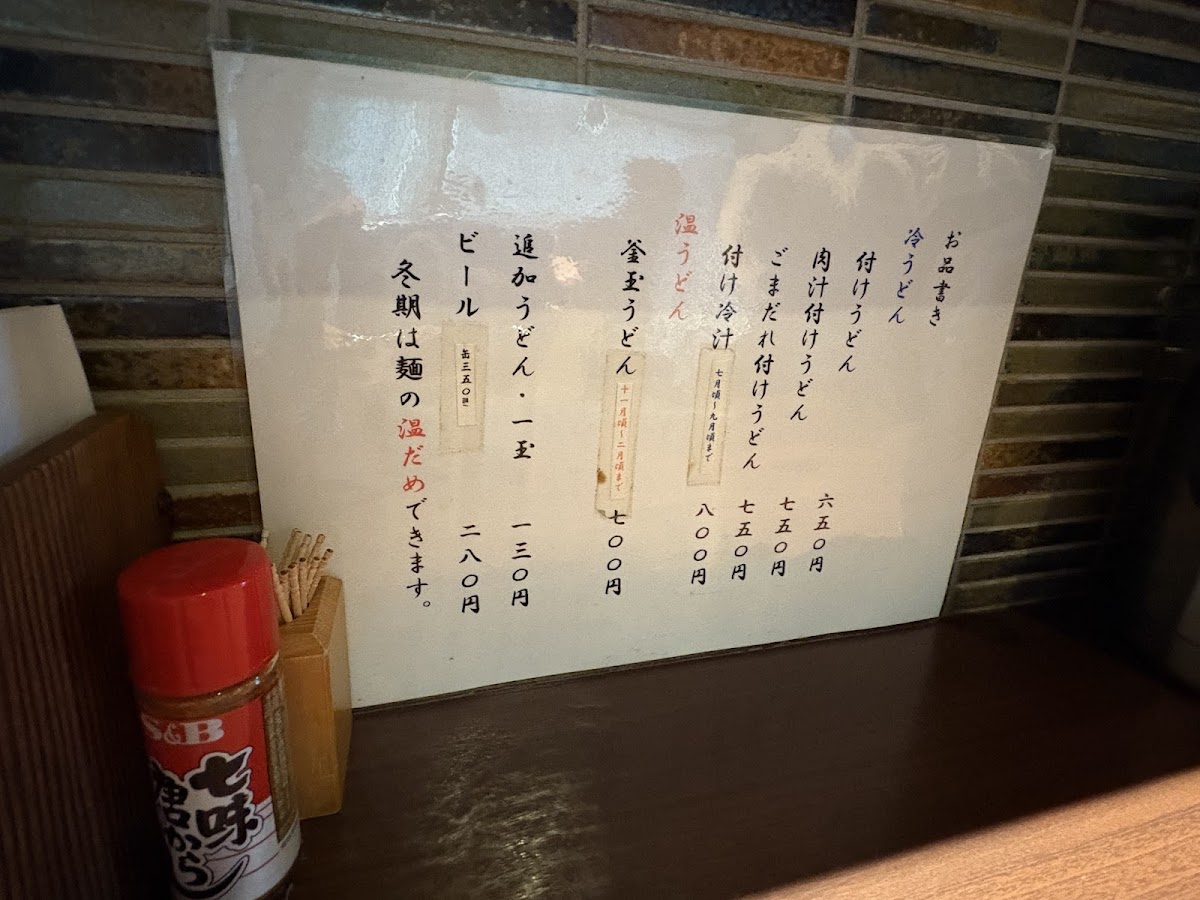 お品書き
冷うどん
付けうどん 六五〇円
肉汁付けうどん 七五〇円
ごまだれ付けうどん 七五〇円
付け冷汁 七月頃~九月頃まで 八〇〇円
温うどん
釜玉うどん 十一月頃~二月頃まで 七〇〇円
追加うどん・一玉 一三〇円
ビール 缶三五〇㎖ 二八〇円
冬期は麺の温だめできます。
S&B
七味
唐から